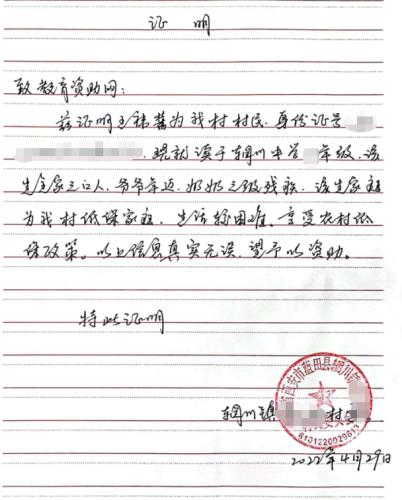 证 明
致教育资助网：
兹证明王祎藠为我村村民，身份证号
，现就读于辋川中学 年级，该
生全家三口人，爷爷年迈，奶奶三级残疾，该生家庭
为我村低保家庭，生活较困难，享受农村低
保政策。以上信息真实无误，望予以资助。
特此证明
西安市蓝田县辋川镇
辋川镇 村
6101220029613
2022年4月29日